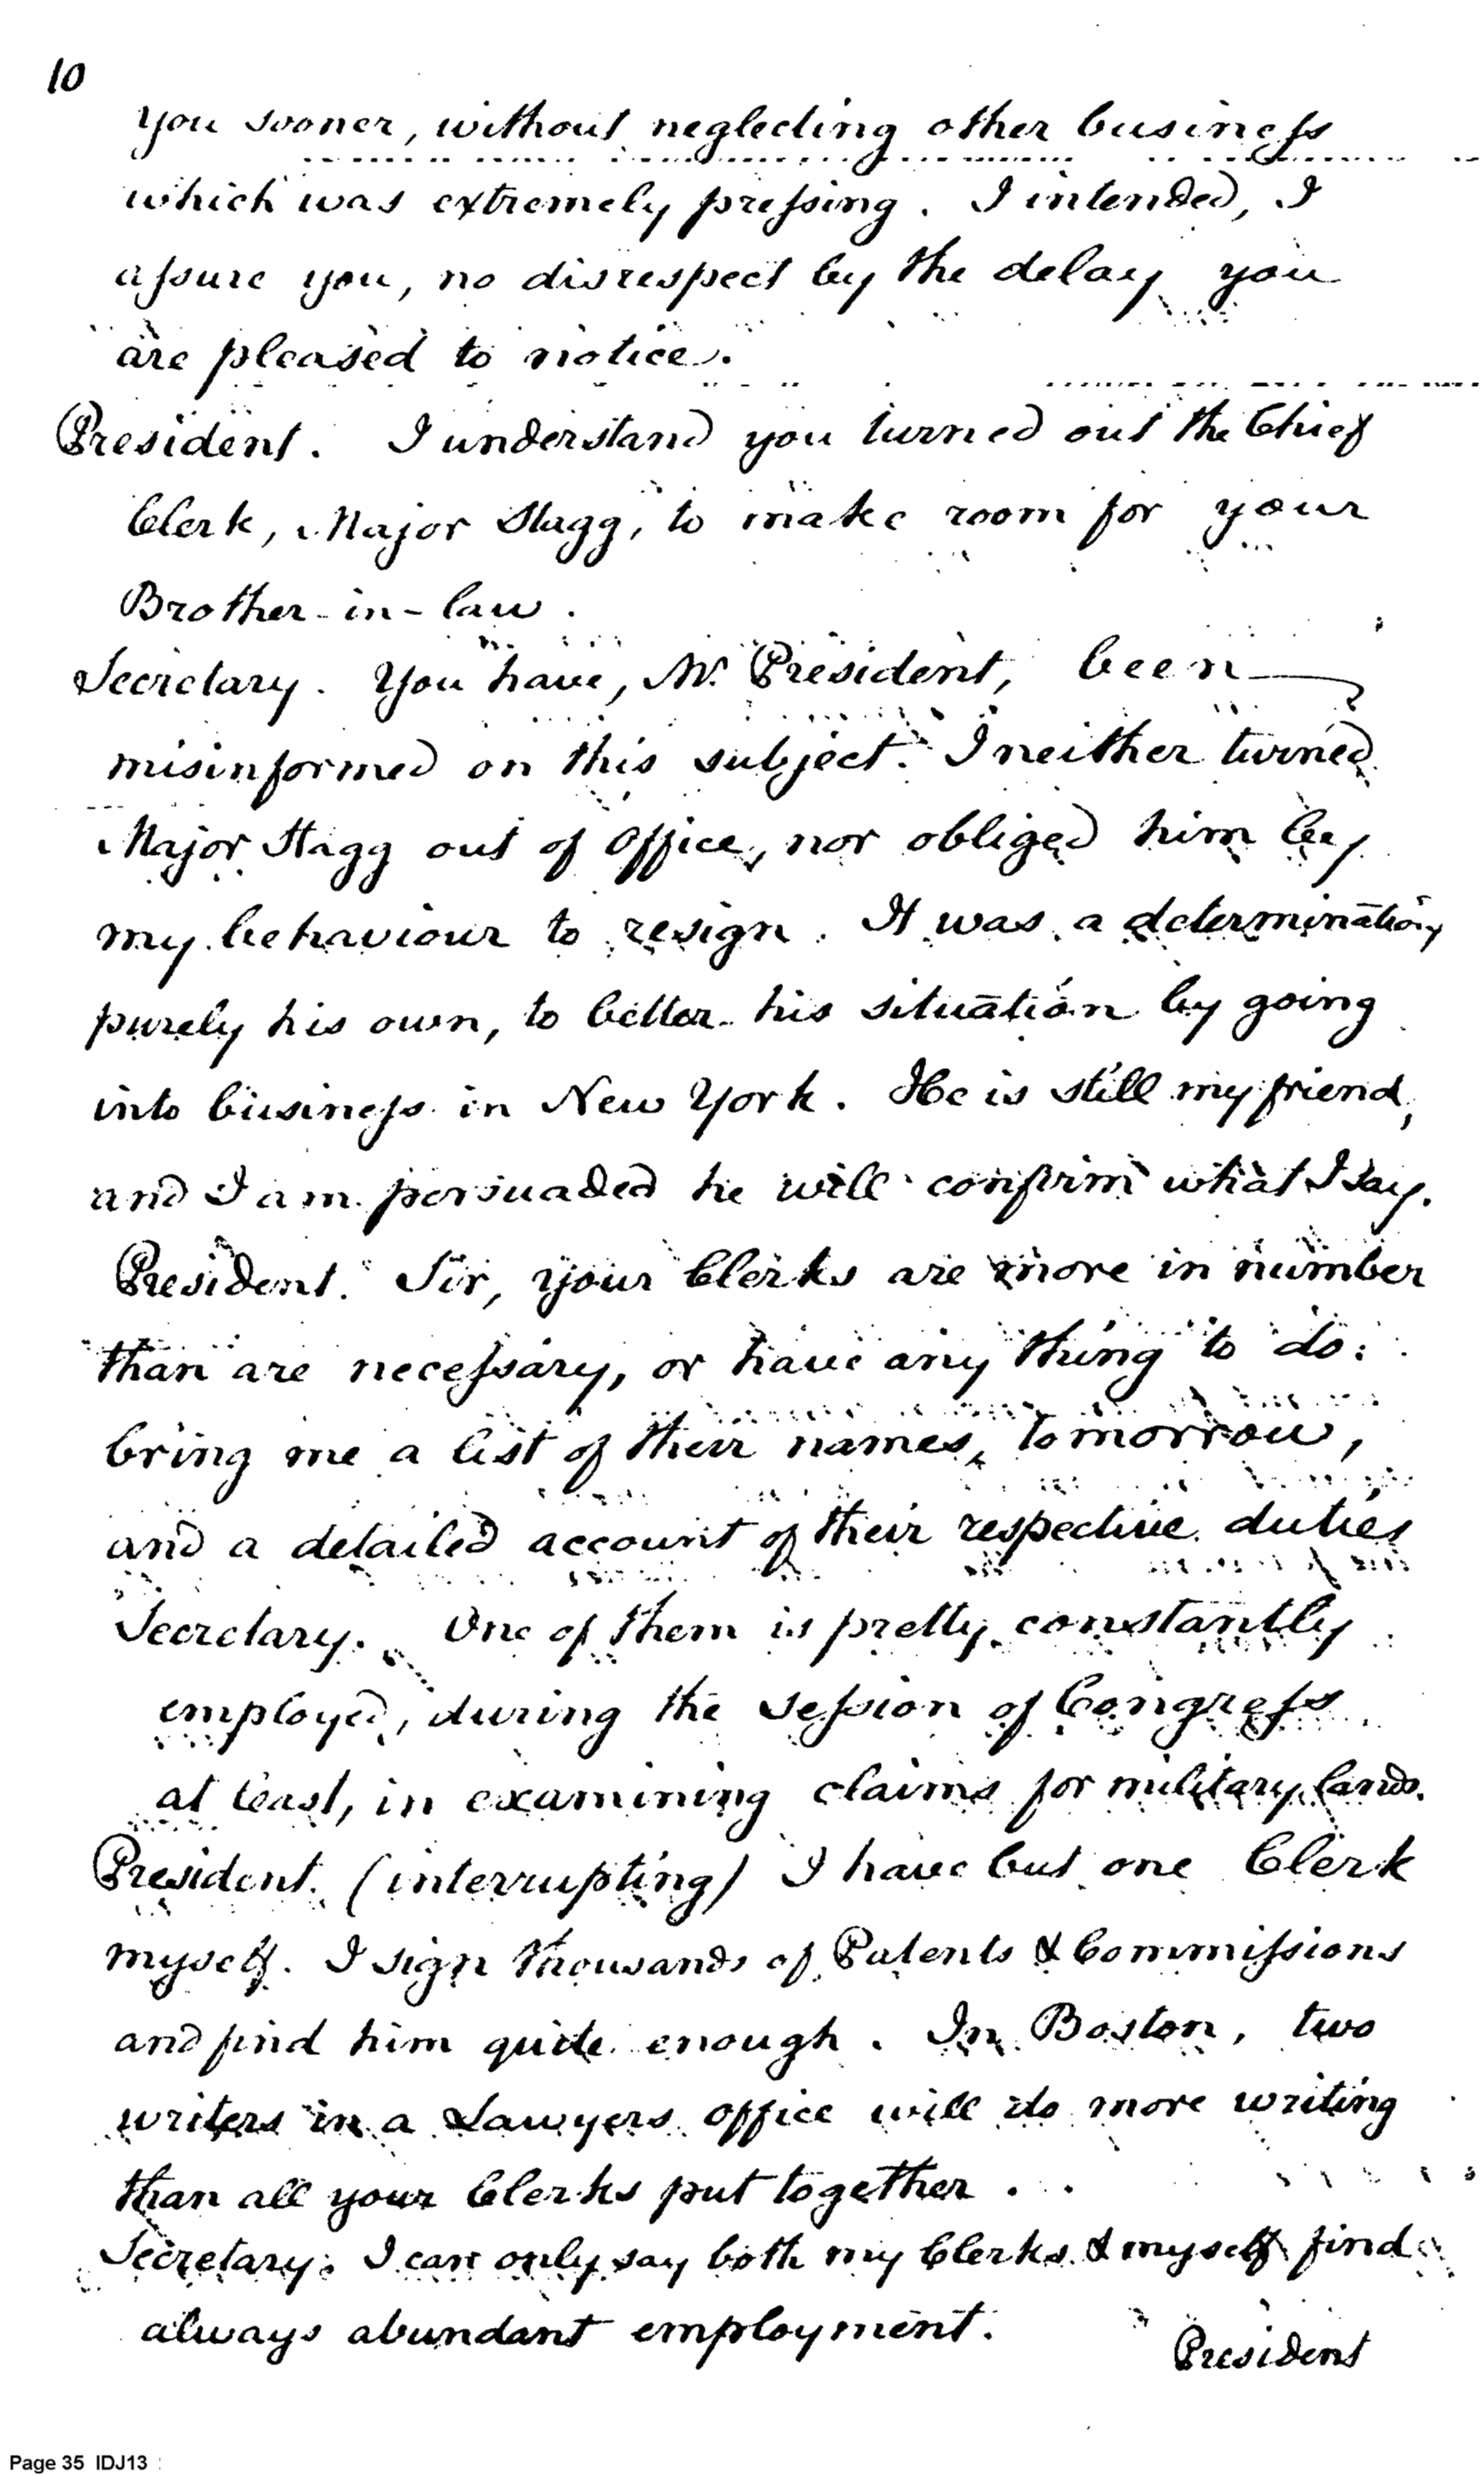 10
you sooner, without neglecting other business
which was extremely pressing. I intended, I
assure you, no disrespect by the delay you
are pleased to notice.
President. I understand you turned out the Chief
Clerk, Major Stagg, to make room for your
Brother-in-law.
Secretary. You have, Mr. President, been
misinformed on this subject. I neither turned
Major Stagg out of office, nor obliged him by
my behaviour to resign. It was a determination
purely his own, to better his situation by going
into business in New York. He is still my friend,
and I am persuaded he will confirm what I say.
President. Sir, your Clerks are more in number
than are necessary, or have any thing to do:
bring me a list of their names, tomorrow,
and a detailed account of their respective duties
Secretary. One of them is pretty constantly
employed, during the session of Congress
at least, in examining claims for military lands.
President. (interrupting) I have but one Clerk
myself. I sign thousands of Patents & Commissions
and find him quite enough. In Boston, two
writers in a Lawyers office will do more writing
than all your Clerks put together . .
Secretary. I can only say both my Clerks & myself find
always abundant employment.
President
Page 35 IDJ13